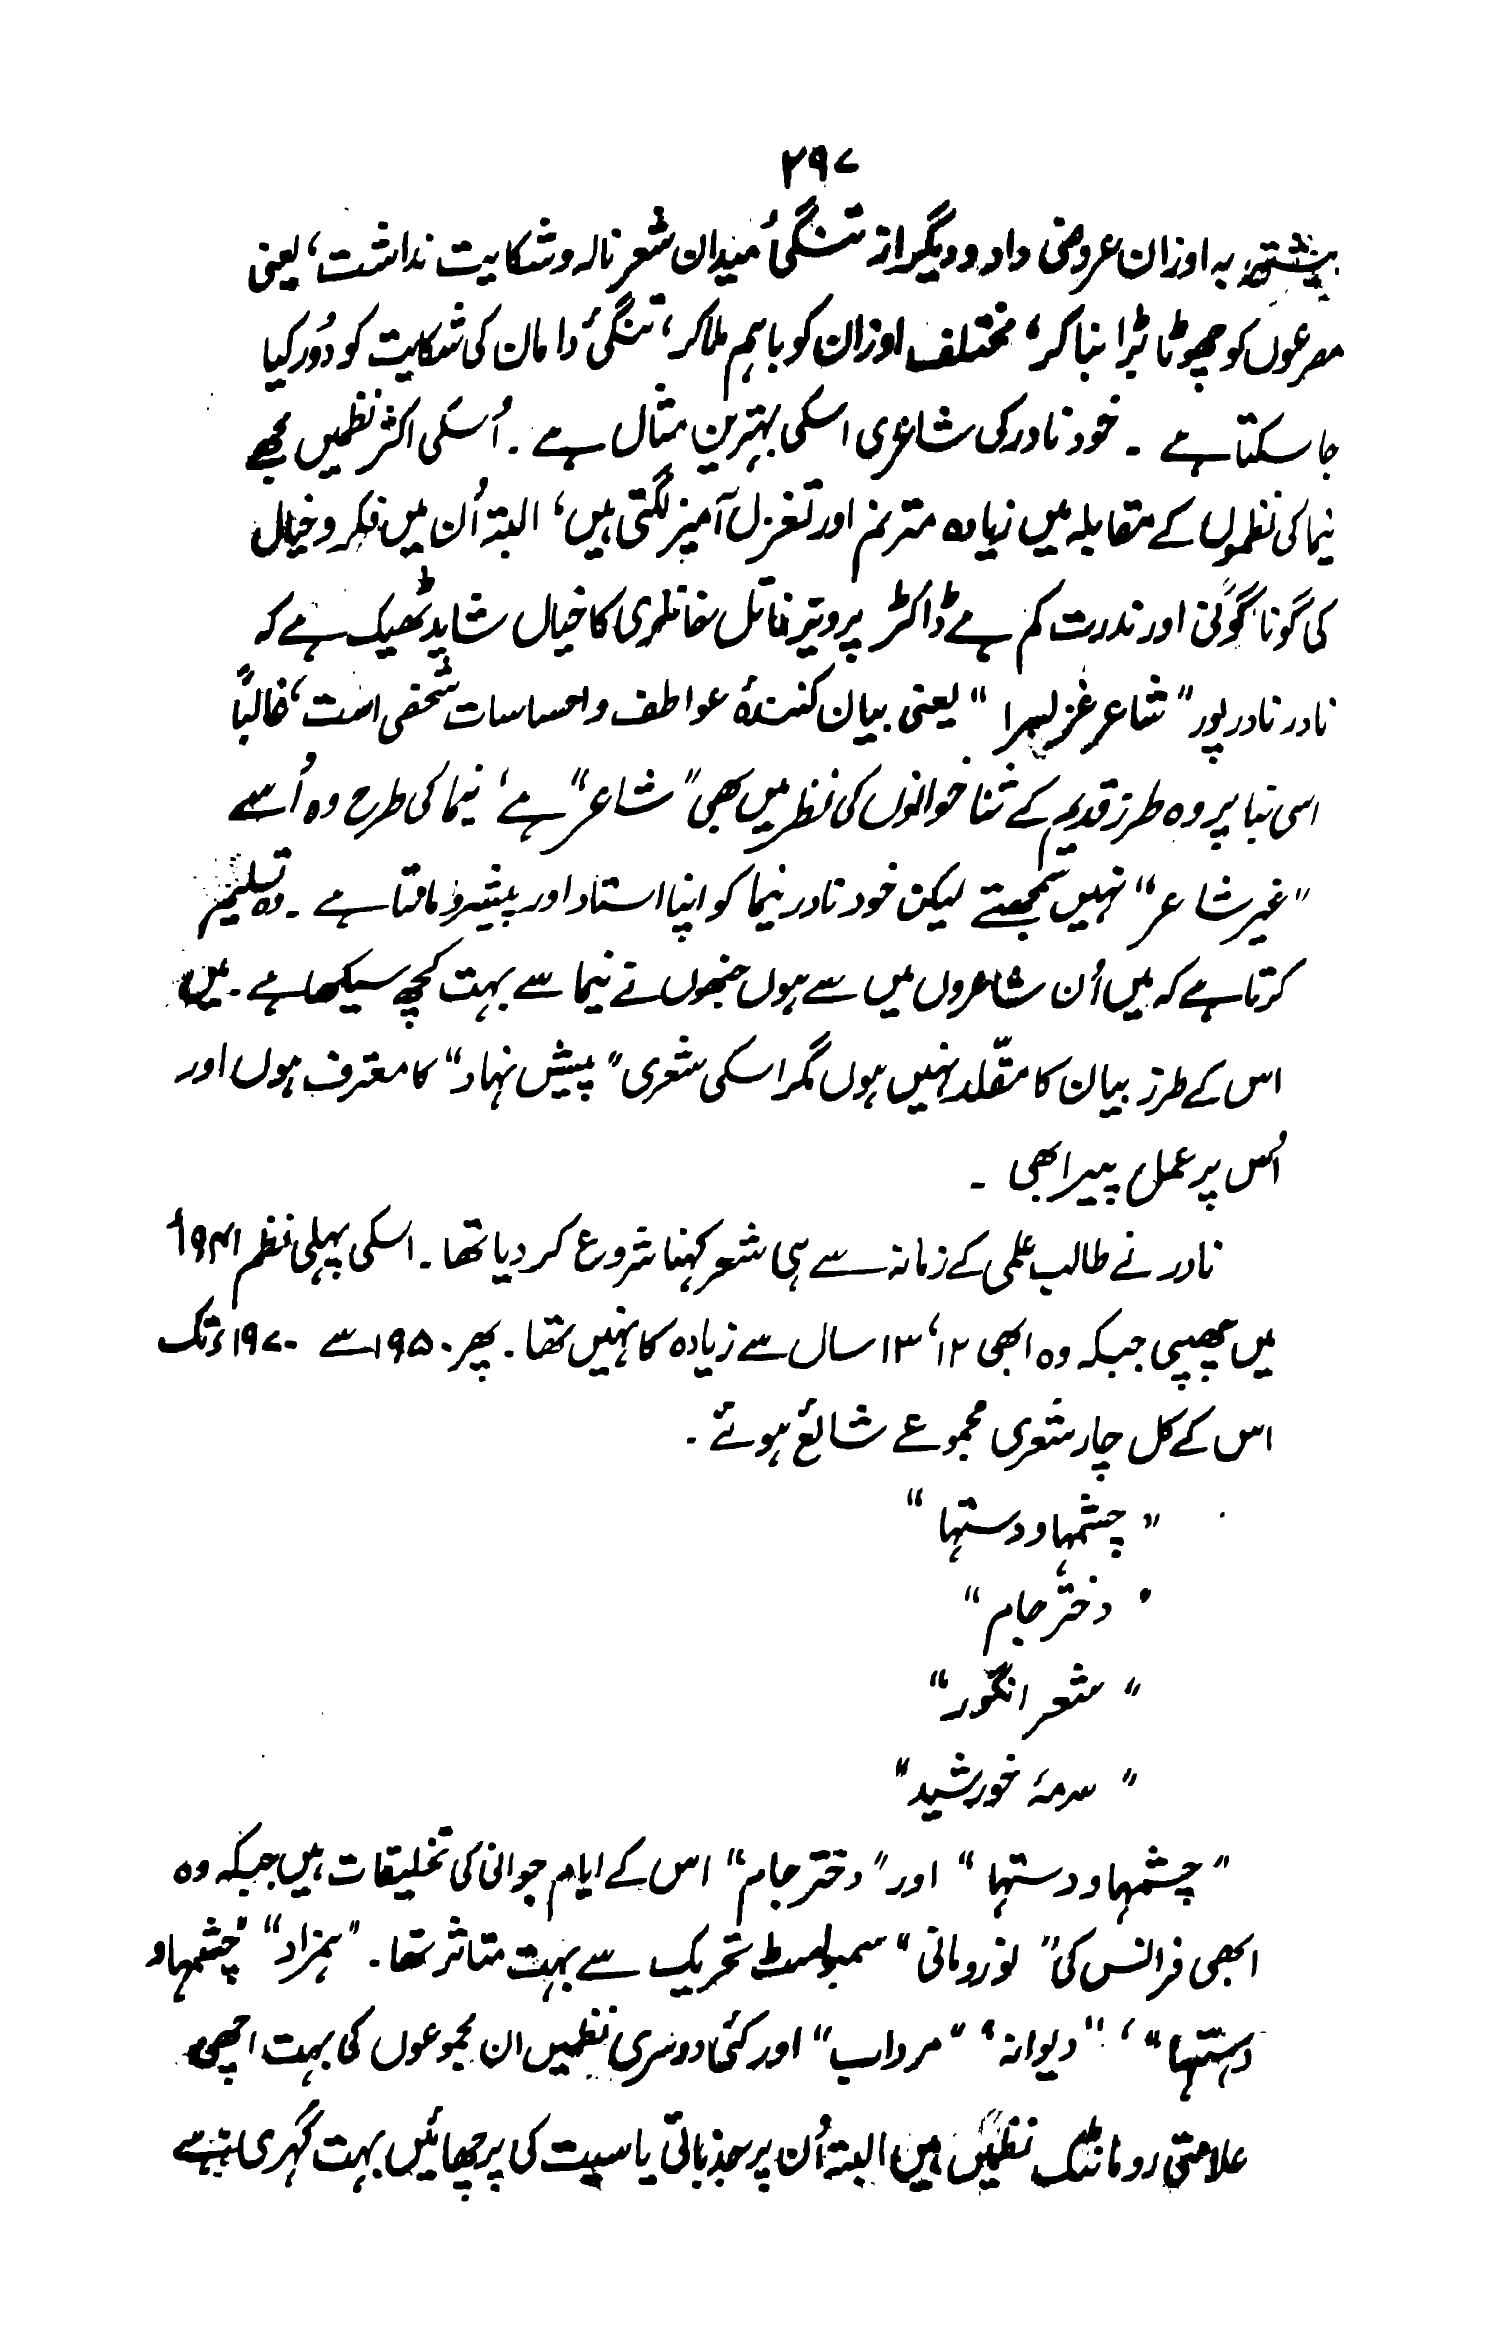 ۲۹۷
بیشتر بہ اوزان عروضی داد و دیگر از تنگیٔ میدان شعر نالہ و شکایت نداشت، یعنی
مصرعوں کو چھوٹا بڑا بنا کر، مختلف اوزان کو باہم ملا کر، تنگیٔ دامان کی شکایت کو دُور کیا
جا سکتا ہے ۔ خود نادر کی شاعری اسکی بہترین مثال ہے ۔ اُسکی اکثر نظمیں مجھے
نیما کی نظموں کے مقابلہ میں زیادہ مترنم اور تغزل آمیز لگتی ہیں، البتہ اُن میں فکر و خیال
کی گوناگونی اور ندرت کم ہے ڈاکٹر پرویز ناتل خانلری کا خیال شاید ٹھیک ہے کہ
نادر نادر پور "شاعر غزلسرا" یعنی بیان کنندۂ عواطف و احساسات شخصی است، غالباً
اسی بنا پر وہ طرز قدیم کے ثنا خوانوں کی نظر میں بھی "شاعر" ہے، نیما کی طرح وہ اُسے
"غیر شاعر" نہیں سمجھتے لیکن خود نادر نیما کو اپنا استاد اور پیشرو مانتا ہے ۔ وہ تسلیم
کرتا ہے کہ میں اُن شاعروں میں سے ہوں جنھوں نے نیما سے بہت کچھ سیکھا ہے ۔ میں
اس کے طرز بیان کا مقلّد نہیں ہوں مگر اسکی شعری "پیش نہاد" کا معترف ہوں اور
اُس پر عمل پیرا بھی ۔
نادر نے طالب علمی کے زمانہ سے ہی شعر کہنا شروع کر دیا تھا ۔ اسکی پہلی نظم ۱۹۴۱ء
میں چھپی جبکہ وہ ابھی ۱۲، ۱۳ سال سے زیادہ کا نہیں تھا ۔ پھر ۱۹۵۰ سے ۱۹۷۰ء تک
اس کے کل چار شعری مجموعے شائع ہوئے ۔
"چشمہا و دستہا"
"دختر جام"
"شعر انگور"
"سرمۂ خورشید"
"چشمہا و دستہا" اور "دختر جام" اس کے ایام جوانی کی تخلیقات ہیں جبکہ وہ
ابھی فرانس کی "نورومانی" سمبولسٹ تحریک سے بہت متاثر تھا ۔ "ہمزاد" "چشمہا و
دستہا"، "دیوانہ" "مرداب" اور کئی دوسری نظمیں ان مجموعوں کی بہت اچھی
علامتی رومانٹک نظمیں ہیں البتہ اُن پر جذباتی یاسیت کی پرچھائیں بہت گہری ہے